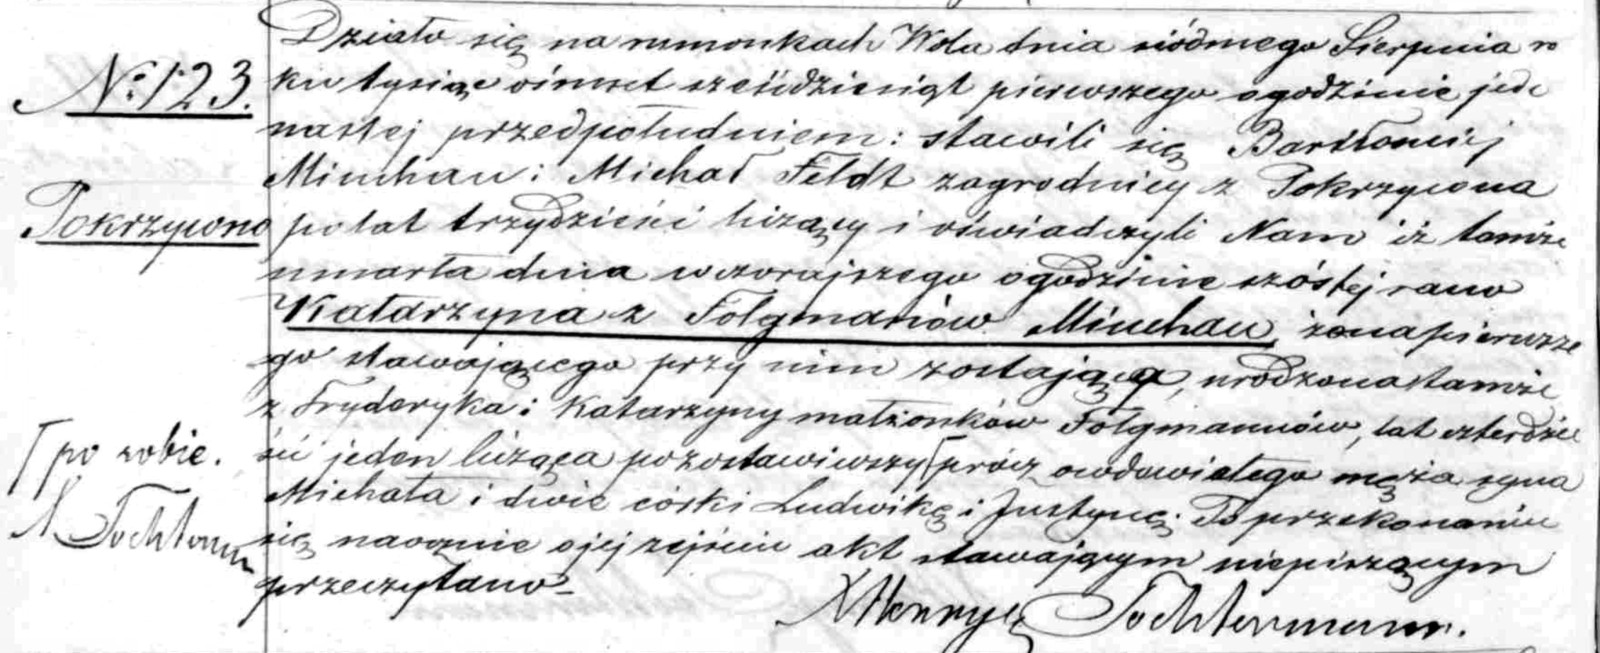 Działo się na rumonkach Wola dnia siódmego Sierpnia ro
№ 123.
ku tysiąc ośmset sześćdziesiąt pierwszego o godzinie jede
nastej przedpołudniem: stawili się Bartłomiej
Minchau i Michał Feldt zagrodnicy z Pokrzywna
Pokrzywno
po lat trzydzieści liczący i oświadczyli Nam iż tamże
umarła dnia wczorajszego o godzinie szóstej rano
Katarzyna z Folgmanów Minchau, żona pierwsze
go stawającego przy nim zostająca, urodzona tamże
z Fryderyka i Katarzyny małżonków Folgmannów, lat czterdzie
ści jeden licząca pozostawiwszy ⌈ prócz owdowiałego męża syna
⌈ po sobie.
Michała i dwie córki Ludwikę i Justynę. Po przekonaniu
X Tochterm
się naocznie o jej zejściu akt stawającym niepiszącym
przeczytano –
X Henryk Tochtermann.